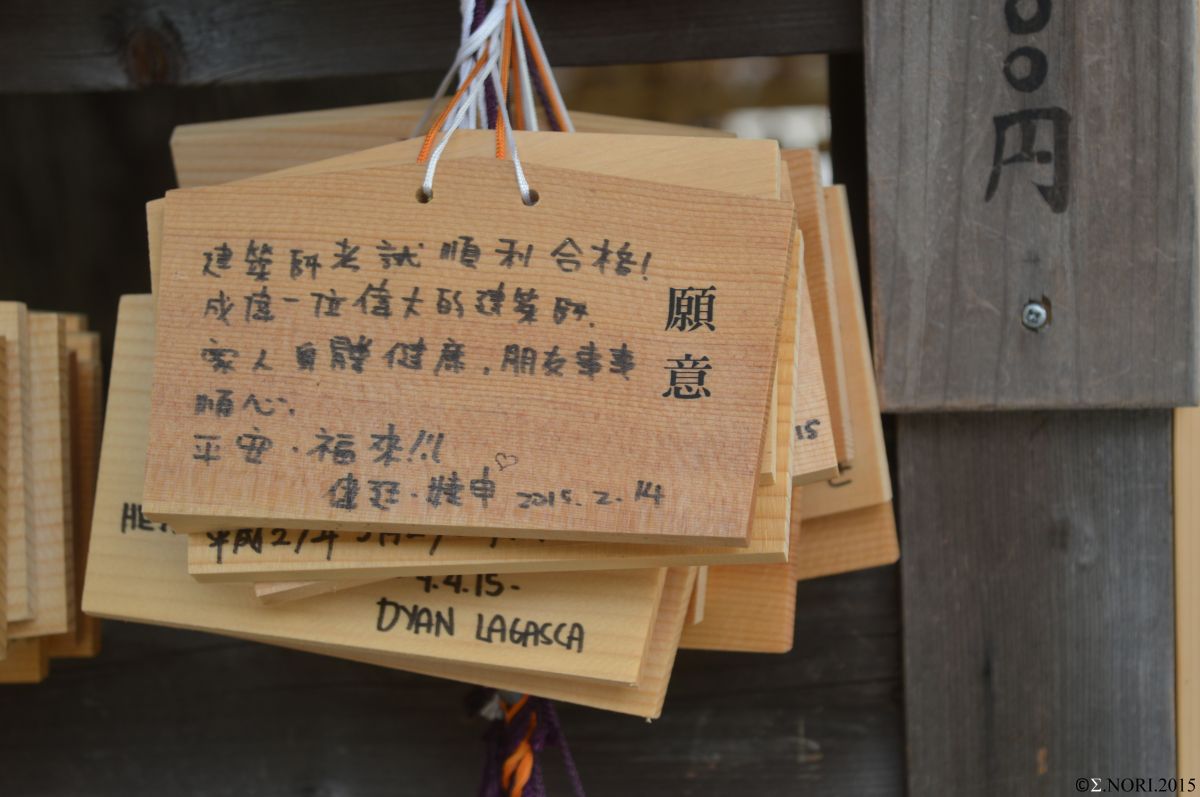 建築師考試順利合格!
成為一位偉大的建築師.
家人身體健康.朋友事事
順心.
平安.福來!!!
2015.2.14
願意
HE
平成27年
4.4.15-
DYAN LAGASCA
15
00円
©Σ.NORI.2015